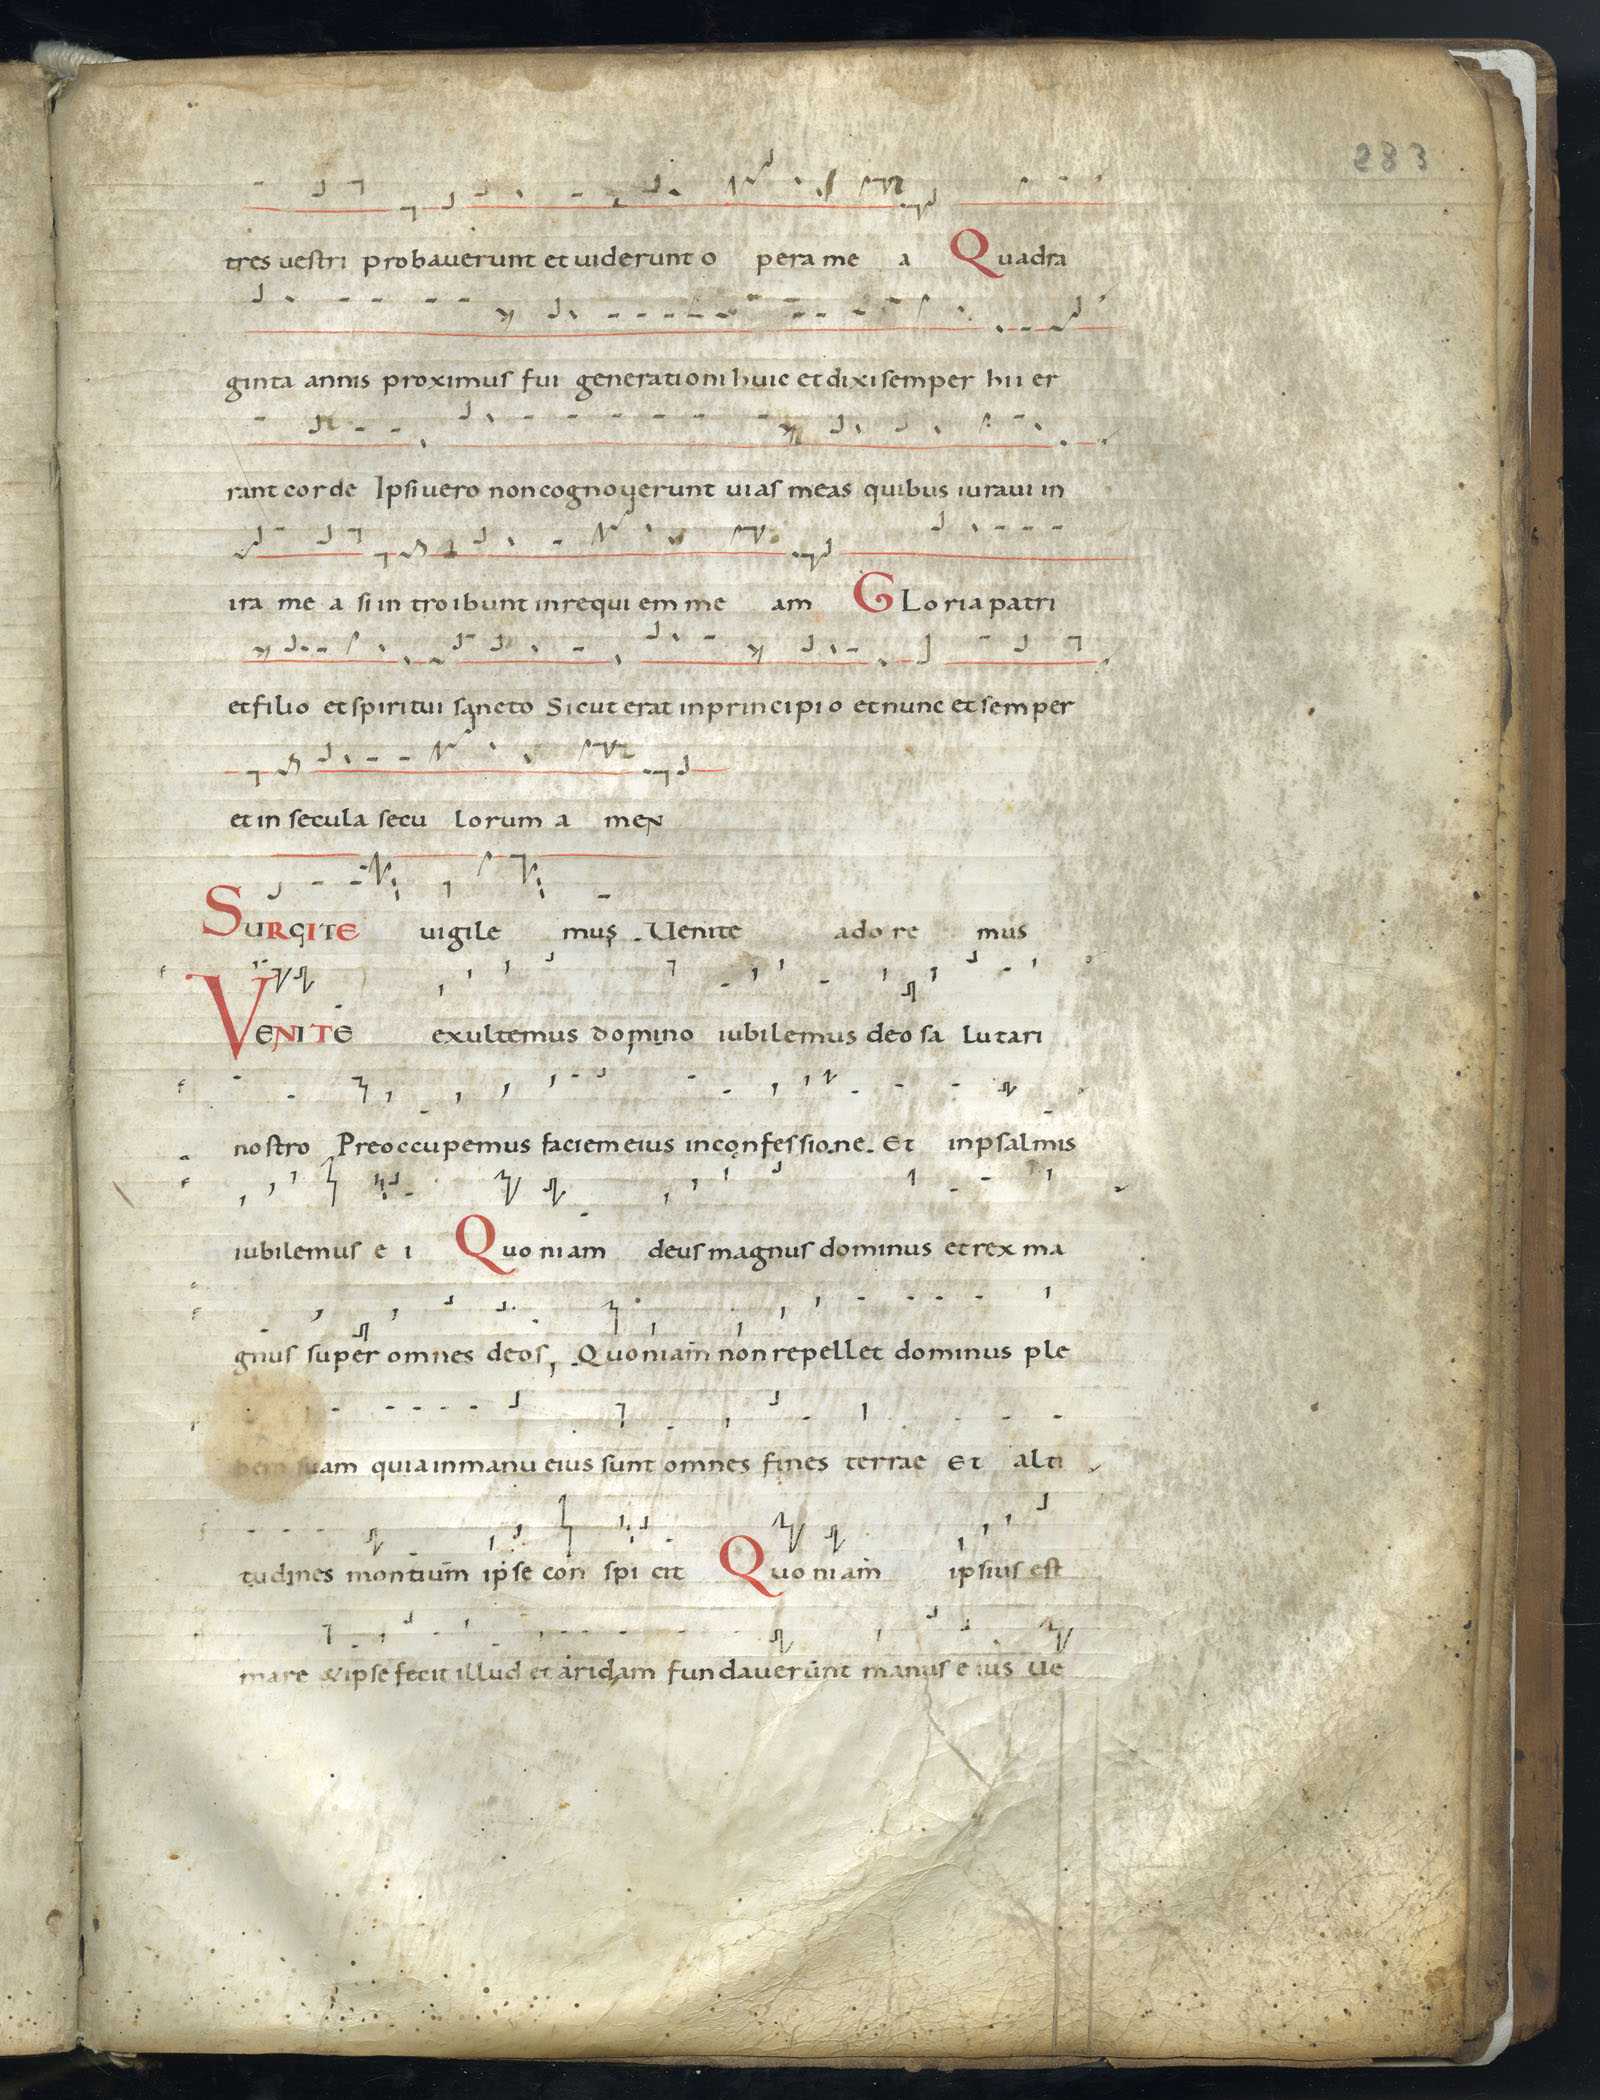 283
tres vestri probaverunt et viderunt o pera me a Quadra
ginta annis proximus fui generationi huic et dixi semper hii er
rant corde Ipsi vero non cognoverunt vias meas quibus iuravi in
ira me a si in troibunt in requi em me am Gloria patri
et filio et spiritui sancto Sicut erat in principio et nunc et semper
et in secula secu lorum a men
Surgite vigile mus. Venite adore mus
Venite exultemus domino iubilemus deo sa lutari
nostro Preoccupemus faciem eius in confessione. Et in psalmis
iubilemus e i Quoniam deus magnus dominus et rex ma
gnus super omnes deos, Quoniam non repellet dominus ple
bem suam quia in manu eius sunt omnes fines terrae Et alti
tudines montium ipse con spi cit Quoniam ipsius est
mare & ipse fecit illud et aridam fundaverunt manus e ius Ve